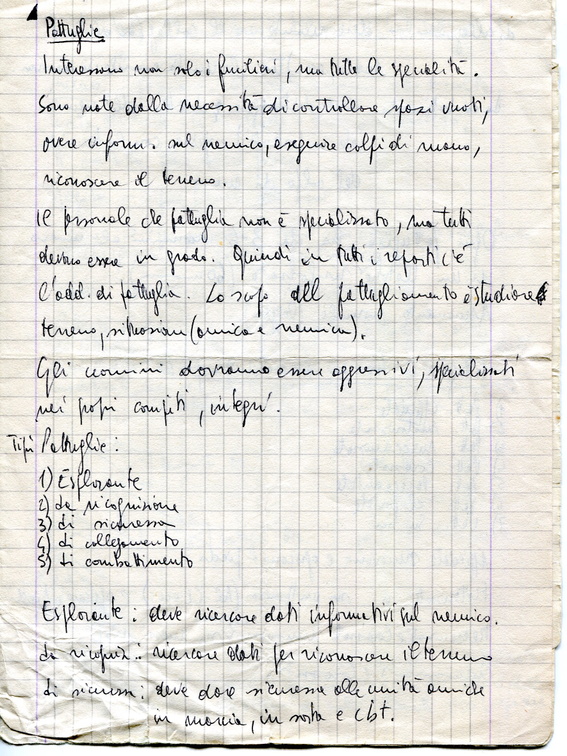 Pattuglie
Interessano non solo i fucilieri, ma tutte le specialità.
Sono nate dalla necessità di controllare spazi vuoti,
avere inform. sul nemico, eseguire colpi di mano,
riconoscere il terreno.
Il personale che pattuglia non è specializzato, ma tutti
devono essere in grado. Quindi in tutti i reparti c'è
l'add. di pattuglia. Lo scopo del pattugliamento è studiare
terreno, situazioni (amica e nemica).
Gli uomini dovranno essere aggressivi, specializzati
nei propri compiti, integri.
Tipi Pattuglie:
1) Esplorante
2) da ricognizione
3) di sicurezza
4) di collegamento
5) di combattimento
Esplorante: deve ricercare dati informativi sul nemico.
da ricogniz.: ricercare dati per riconoscere il terreno
di sicurezza: deve dare sicurezza alle unità amiche
in marcia, in sosta e cbt.